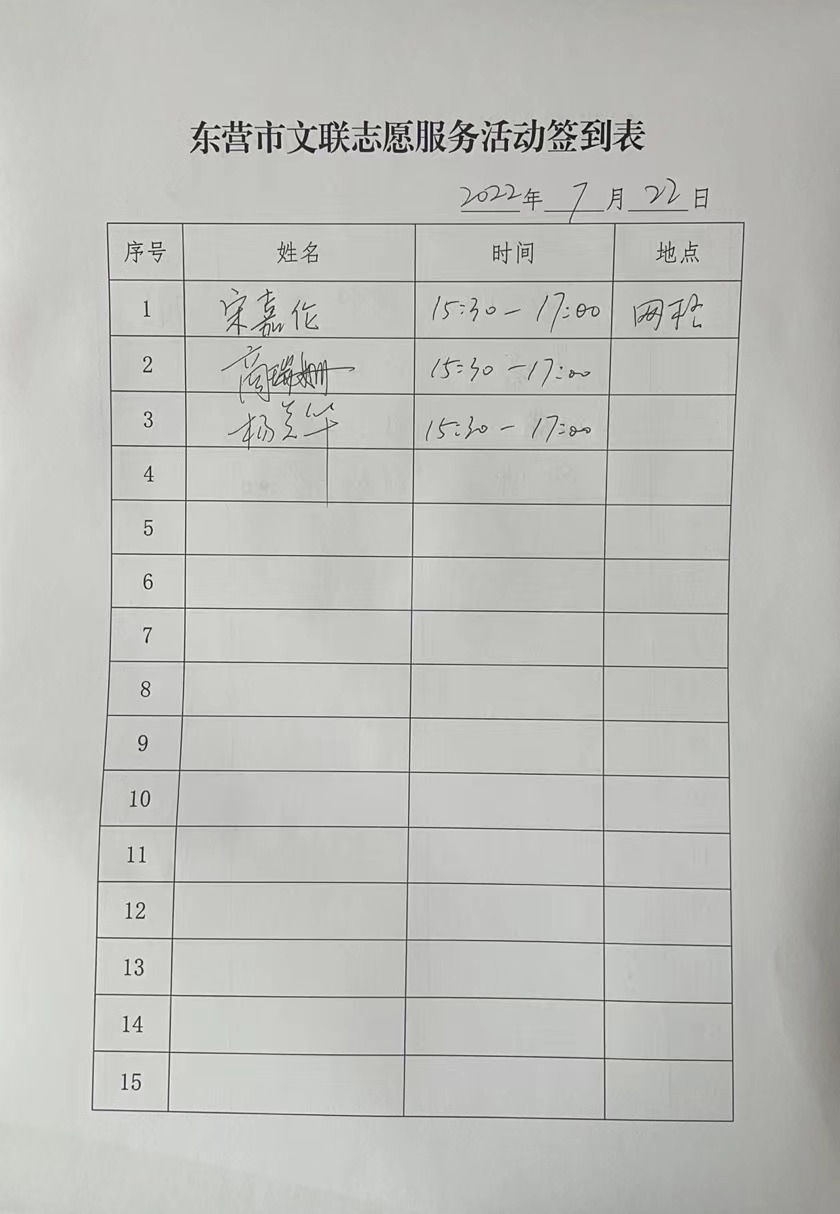 东营市文联志愿服务活动签到表
2022年 7 月 22 日
序号 姓名 时间 地点
1 宋嘉伦 15:30-17:00 网格
2 商瑞姗 15:30-17:00
3 杨美华 15:30-17:00
4
5
6
7
8
9
10
11
12
13
14
15